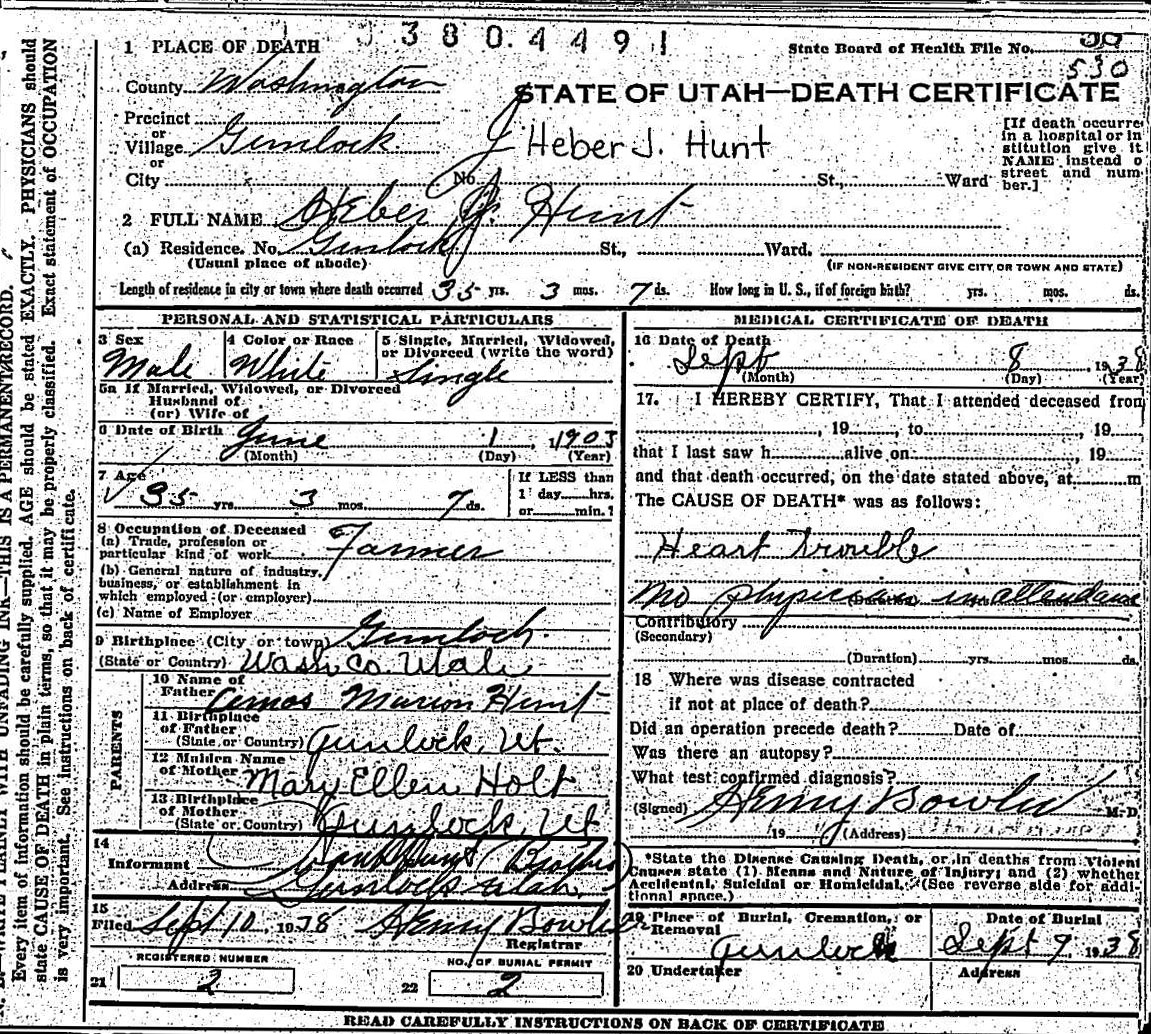 3 8 0 4 4 9 1
1 PLACE OF DEATH
State Board of Health File No.
530
County Washington
STATE OF UTAH—DEATH CERTIFICATE
Precinct
or
Village Gunlock
or
City No. St., Ward
Heber J. Hunt
[If death occurre
in a hospital or in
stitution give it
NAME instead o
street and num
ber.]
2 FULL NAME Heber J. Hunt
(a) Residence. No. Gunlock St., Ward.
(Usual place of abode) (IF NON-RESIDENT GIVE CITY OR TOWN AND STATE)
Length of residence in city or town where death occurred 35 yrs. 3 mos. 7 ds. How long in U. S., if of foreign birth? yrs. mos. ds.
PERSONAL AND STATISTICAL PARTICULARS
3 Sex
Male
4 Color or Race
White
5 Single, Married, Widowed,
or Divorced (write the word)
Single
5a If Married, Widowed, or Divorced
Husband of
(or) Wife of
6 Date of Birth June 1, 1903
(Month) (Day) (Year)
7 Age
35 yrs. 3 mos. 7 ds.
If LESS than
1 day hrs.
or min.?
8 Occupation of Deceased
(a) Trade, profession or
particular kind of work Farmer
(b) General nature of industry,
business, or establishment in
which employed (or employer)
(c) Name of Employer
9 Birthplace (City or town) Gunloch
(State or Country) Wash Co. Utah
PARENTS
10 Name of
Father Amos Marion Hunt
11 Birthplace
of Father
(State or Country) Gunlock, Ut.
12 Maiden Name
of Mother Mary Ellen Holt
13 Birthplace
of Mother
(State or Country) Gunlock, Ut
14
Informant Hunt (Brother)
Address Gunlock Utah
15
Filed Sept 10 1938 Henry Bowler
Registrar
REGISTERED NUMBER
21 2
NO. OF BURIAL PERMIT
22 2
MEDICAL CERTIFICATE OF DEATH
16 Date of Death
Sept 8 1938
(Month) (Day) (Year)
17. I HEREBY CERTIFY, That I attended deceased from
, 19 , to , 19
that I last saw h alive on , 19
and that death occurred, on the date stated above, at m
The CAUSE OF DEATH* was as follows:
Heart trouble
No physician in attendance
(Duration) yrs. mos.
Contributory
(Secondary)
(Duration) yrs. mos. ds.
18 Where was disease contracted
if not at place of death?
Did an operation precede death? Date of
Was there an autopsy?
What test confirmed diagnosis?
(Signed) Henry Bowler M. D.
19 (Address)
*State the Disease Causing Death, or in deaths from Violent
Causes state (1) Means and Nature of Injury; and (2) whether
Accidental, Suicidal or Homicidal. (See reverse side for addi-
tional space.)
19 Place of Burial, Cremation, or
Removal
Gunlock
Date of Burial
Sept 9 1938
20 Undertaker
Address
READ CAREFULLY INSTRUCTIONS ON BACK OF CERTIFICATE
WRITE PLAINLY WITH UNFADING INK—THIS IS A PERMANENT RECORD.
Every item of information should be carefully supplied. AGE should be stated EXACTLY. PHYSICIANS should
state CAUSE OF DEATH in plain terms, so that it may be properly classified. Exact statement of OCCUPATION
is very important. See instructions on back of certificate.